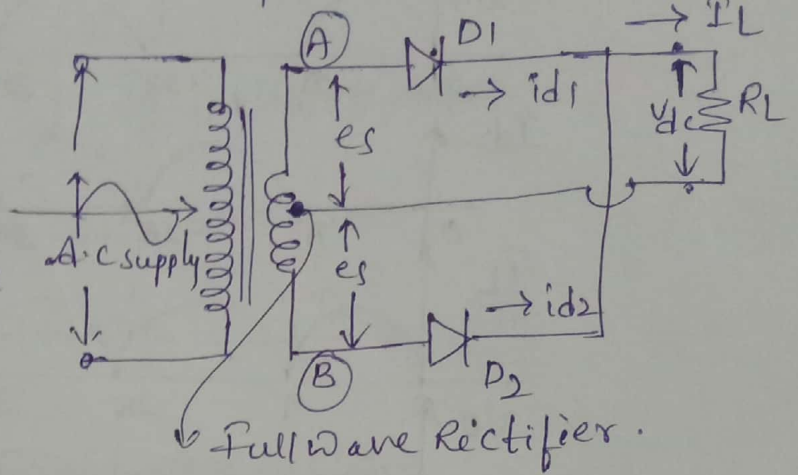 A
D1
IL
id1
es
Vdc
RL
A.C supply
es
id2
B
D2
Full Wave Rectifier.